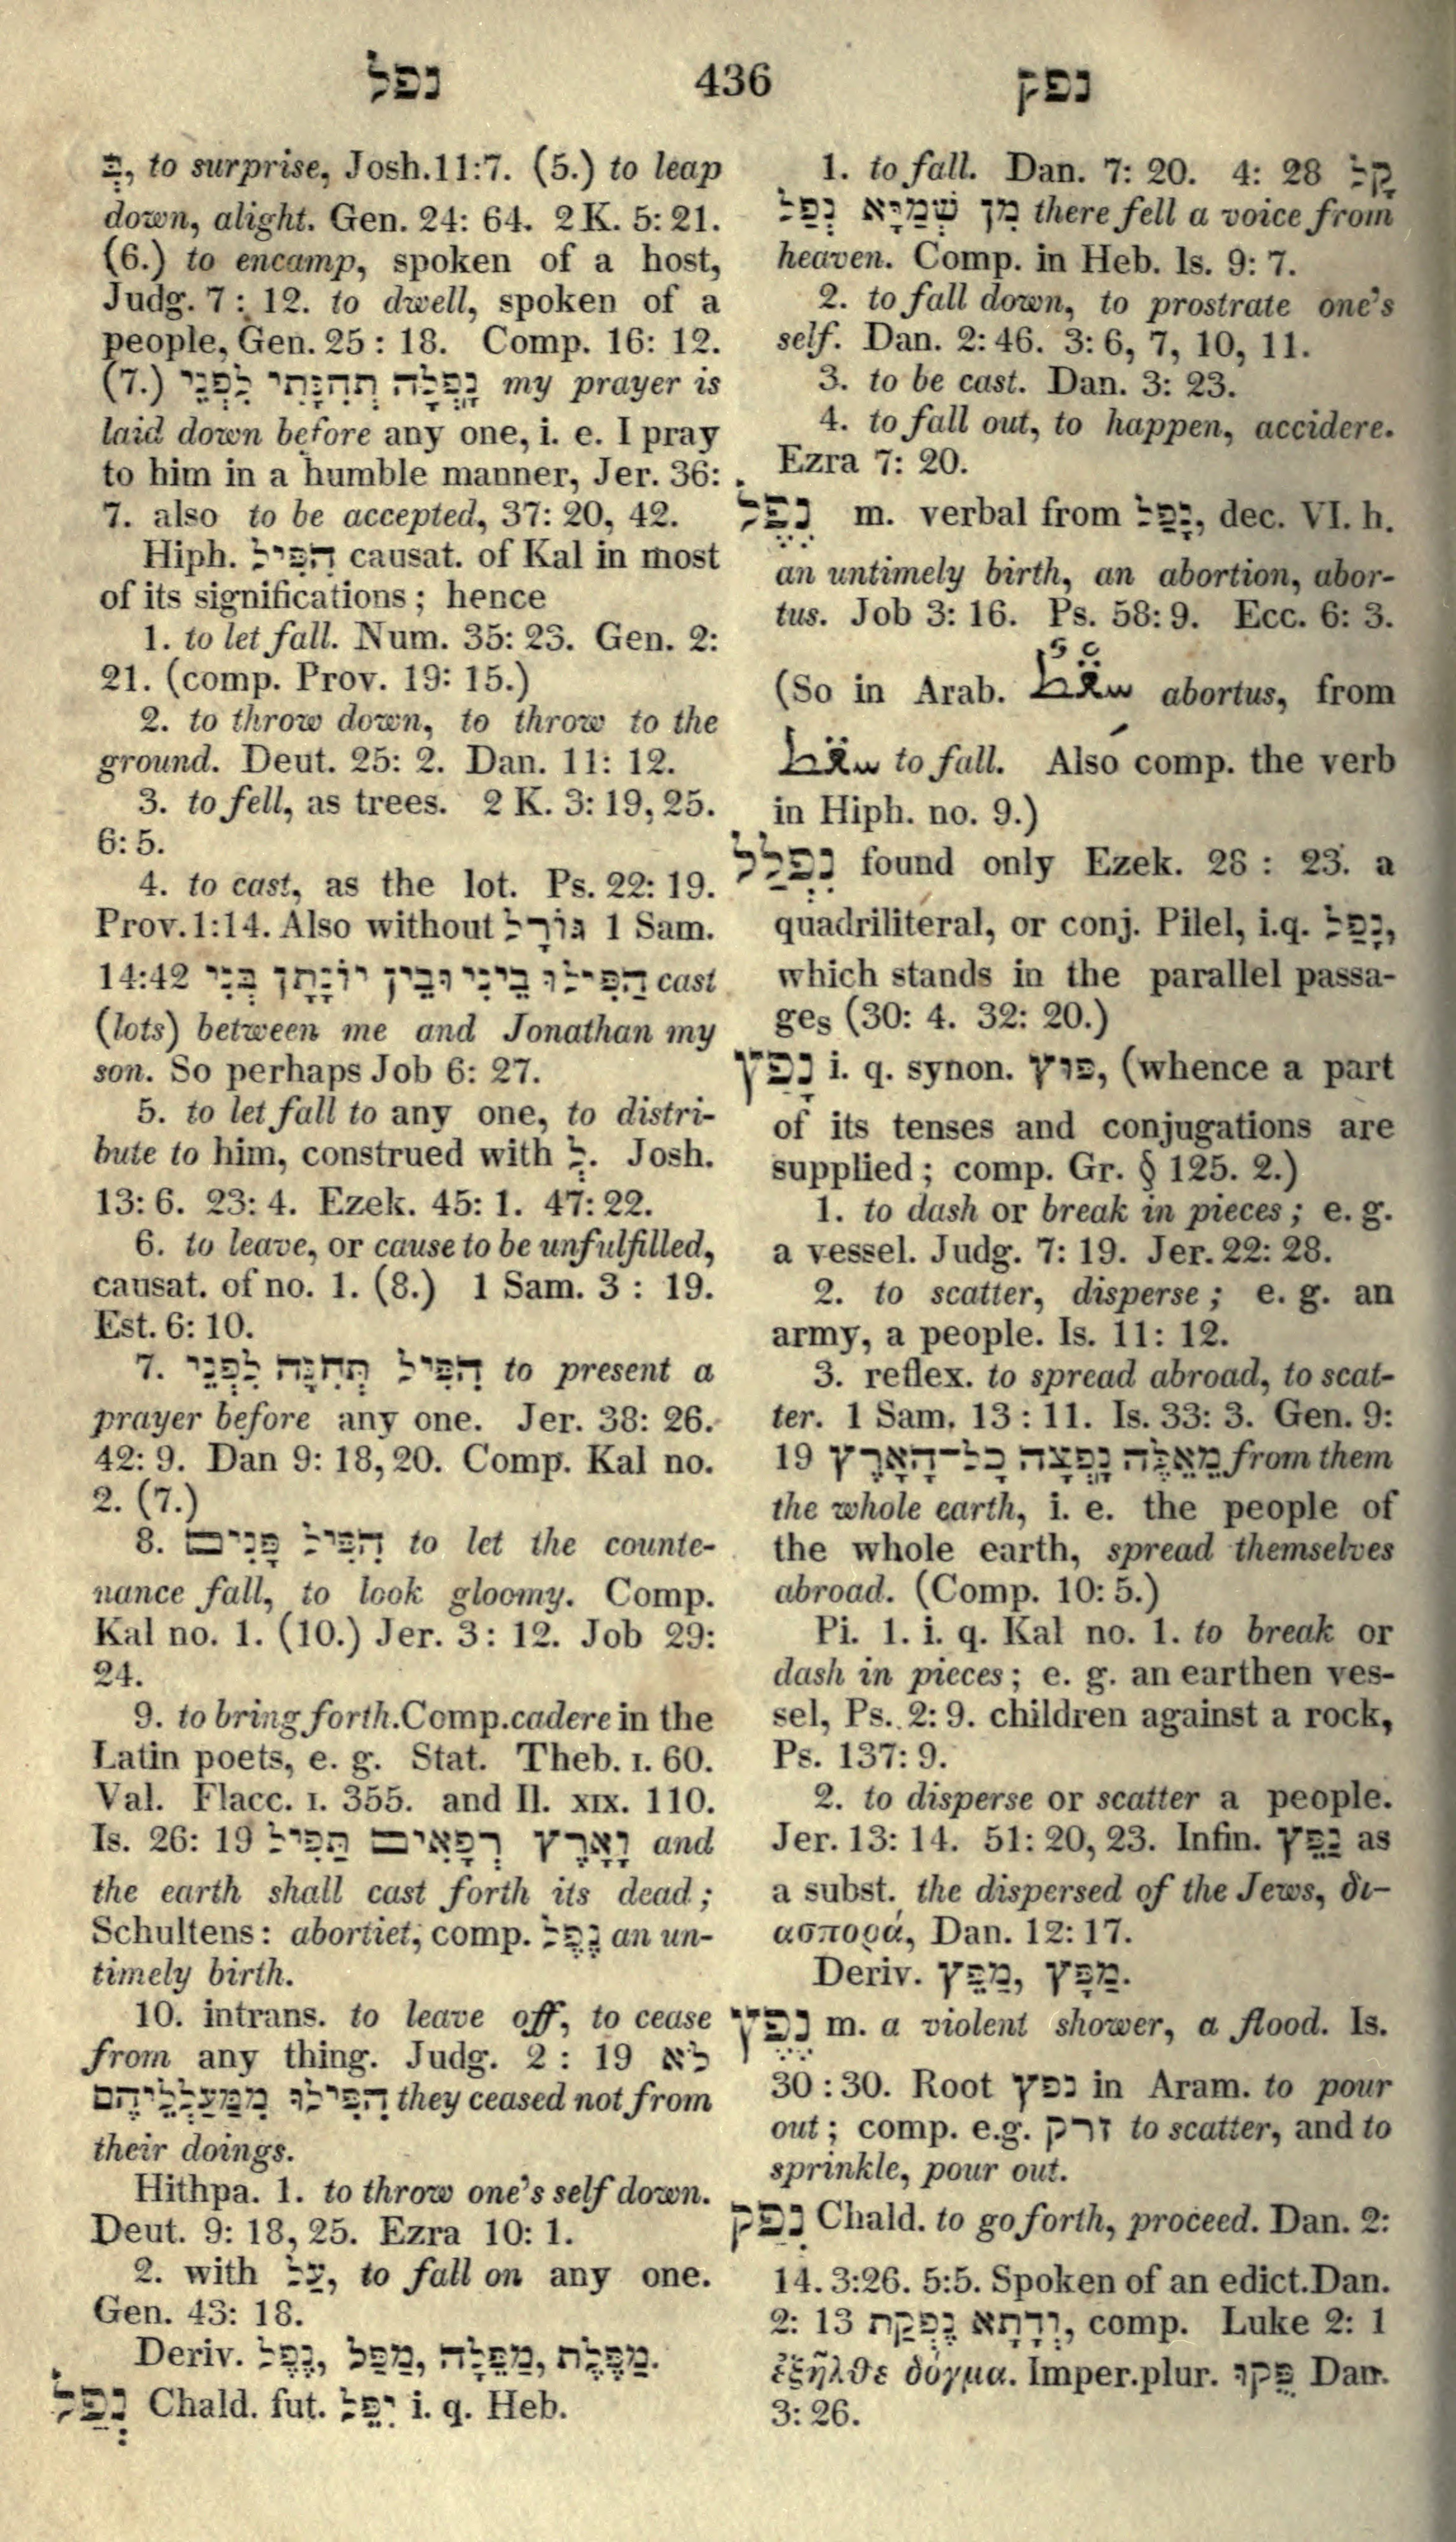 נפל 436 נפק
בְּ, to surprise, Josh.11:7. (5.) to leap
down, alight. Gen. 24: 64. 2 K. 5: 21.
(6.) to encamp, spoken of a host,
Judg. 7 : 12. to dwell, spoken of a
people, Gen. 25 : 18. Comp. 16: 12.
(7.) נָפְלָה תְחִנָּתִי לִפְנֵי my prayer is
laid down before any one, i. e. I pray
to him in a humble manner, Jer. 36:
7. also to be accepted, 37: 20, 42.
Hiph. הִפִּיל causat. of Kal in most
of its significations ; hence
1. to let fall. Num. 35: 23. Gen. 2:
21. (comp. Prov. 19: 15.)
2. to throw down, to throw to the
ground. Deut. 25: 2. Dan. 11: 12.
3. to fell, as trees. 2 K. 3: 19, 25.
6: 5.
4. to cast, as the lot. Ps. 22: 19.
Prov. 1:14. Also without גּוֹרָל 1 Sam.
14:42 הַפִּילוּ בֵּינִי וּבֵין יוֹנָתָן בְּנִי cast
(lots) between me and Jonathan my
son. So perhaps Job 6: 27.
5. to let fall to any one, to distri-
bute to him, construed with לְ. Josh.
13: 6. 23: 4. Ezek. 45: 1. 47: 22.
6. to leave, or cause to be unfulfilled,
causat. of no. 1. (8.) 1 Sam. 3 : 19.
Est. 6: 10.
7. הִפִּיל תְּחִנָּה לִפְנֵי to present a
prayer before any one. Jer. 38: 26.
42: 9. Dan 9: 18, 20. Comp. Kal no.
2. (7.)
8. הִפִּיל פָּנִים to let the counte-
nance fall, to look gloomy. Comp.
Kal no. 1. (10.) Jer. 3 : 12. Job 29:
24.
9. to bring forth. Comp. cadere in the
Latin poets, e. g. Stat. Theb. I. 60.
Val. Flacc. I. 355. and Il. XIX. 110.
Is. 26: 19 וָאָרֶץ רְפָאִים תַּפִּיל and
the earth shall cast forth its dead ;
Schultens : abortiet, comp. נֶפֶל an un-
timely birth.
10. intrans. to leave off, to cease
from any thing. Judg. 2 : 19 לֹא
הִפִּילוּ מִמַּעַלְלֵיהֶם they ceased not from
their doings.
Hithpa. 1. to throw one's self down.
Deut. 9: 18, 25. Ezra 10: 1.
2. with עַל, to fall on any one.
Gen. 43: 18.
Deriv. נֶפֶל, מַפָּל, מַפָּלָה, מַפֶּלֶת.
נְפַל Chald. fut. יִפֵּל i. q. Heb.
1. to fall. Dan. 7: 20. 4: 28 קָל
מִן שְׁמַיָּא נְפַל there fell a voice from
heaven. Comp. in Heb. Is. 9: 7.
2. to fall down, to prostrate one's
self. Dan. 2: 46. 3: 6, 7, 10, 11.
3. to be cast. Dan. 3: 23.
4. to fall out, to happen, accidere.
Ezra 7: 20.
נֵפֶל m. verbal from נָפַל, dec. VI. h.
an untimely birth, an abortion, abor-
tus. Job 3: 16. Ps. 58: 9. Ecc. 6: 3.
(So in Arab. سقْطٌ abortus, from
سقط to fall. Also comp. the verb
in Hiph. no. 9.)
נִפְלַל found only Ezek. 28 : 23. a
quadriliteral, or conj. Pilel, i.q. נָפַל,
which stands in the parallel passa-
ges (30: 4. 32: 20.)
נָפַץ i. q. synon. פוץ, (whence a part
of its tenses and conjugations are
supplied ; comp. Gr. § 125. 2.)
1. to dash or break in pieces ; e. g.
a vessel. Judg. 7: 19. Jer. 22: 28.
2. to scatter, disperse ; e. g. an
army, a people. Is. 11: 12.
3. reflex. to spread abroad, to scat-
ter. 1 Sam. 13 : 11. Is. 33: 3. Gen. 9:
19 מֵאֵלֶּה נָפְצָה כָל־הָאָרֶץ from them
the whole earth, i. e. the people of
the whole earth, spread themselves
abroad. (Comp. 10: 5.)
Pi. 1. i. q. Kal no. 1. to break or
dash in pieces ; e. g. an earthen ves-
sel, Ps. 2: 9. children against a rock,
Ps. 137: 9.
2. to disperse or scatter a people.
Jer. 13: 14. 51: 20, 23. Infin. נַפֵּץ as
a subst. the dispersed of the Jews, δι-
ασπορά, Dan. 12: 17.
Deriv. מַפֵּץ, מַפָּץ.
נֶפֶץ m. a violent shower, a flood. Is.
30 : 30. Root נפץ in Aram. to pour
out ; comp. e.g. זרק to scatter, and to
sprinkle, pour out.
נְפַק Chald. to go forth, proceed. Dan. 2:
14. 3:26. 5:5. Spoken of an edict. Dan.
2: 13 וְדָתָא נֶפְקַת, comp. Luke 2: 1
ἐξῆλθε δόγμα. Imper. plur. פֻּקוּ Dan.
3: 26.